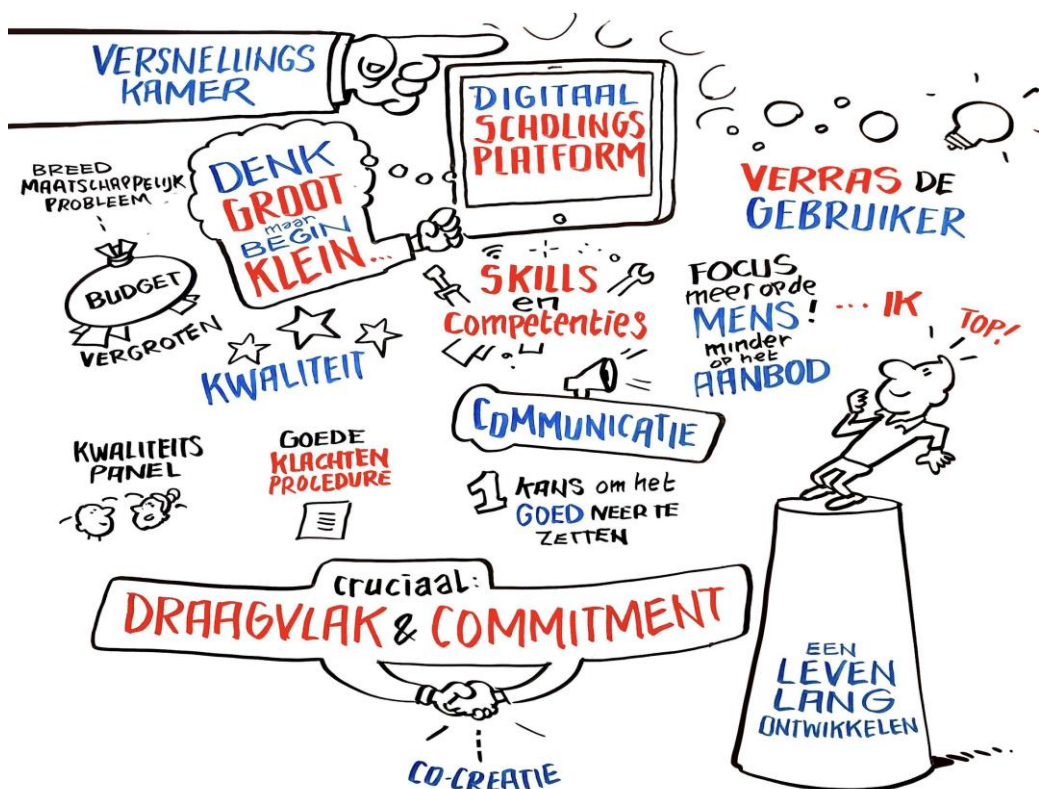 VERSNELLINGS
KAMER
DIGITAAL
SCHOLINGS
PLATFORM
DENK
GROOT
maar
BEGIN
KLEIN...
BREED
MAATSCHAPPELIJK
PROBLEEM
BUDGET
VERGROTEN
VERRAS DE
GEBRUIKER
SKILLS
en
Competenties
FOCUS
meer op de
MENS!
minder
op het
AANBOD
... IK
TOP!
KWALITEIT
COMMUNICATIE
KWALITEITS
PANEL
GOEDE
KLACHTEN
PROCEDURE
1 KANS om het
GOED NEER TE
ZETTEN
cruciaal:
DRAAGVLAK & COMMITMENT
CO-CREATIE
EEN
LEVEN
LANG
ONTWIKKELEN